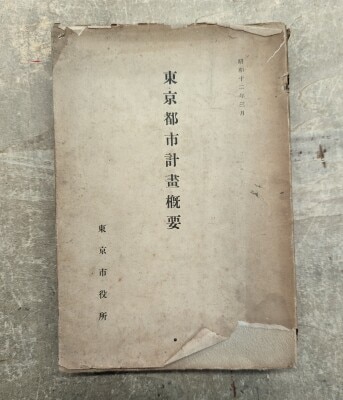 昭和十二年三月
東京都市計畫概要
東京市役所